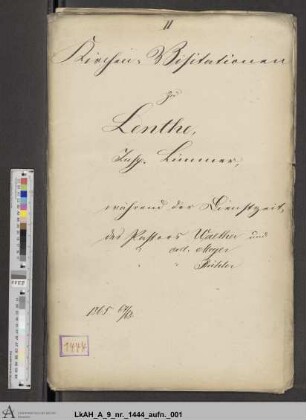 II
Kirchen-Visitationen
zu
Lenthe,
Insp. Limmer,
während der Dienstzeit
des Pastors Walther und
" cart. Meyer
" "
1865
1444
LkAH_A_9_nr._1444_aufn._001